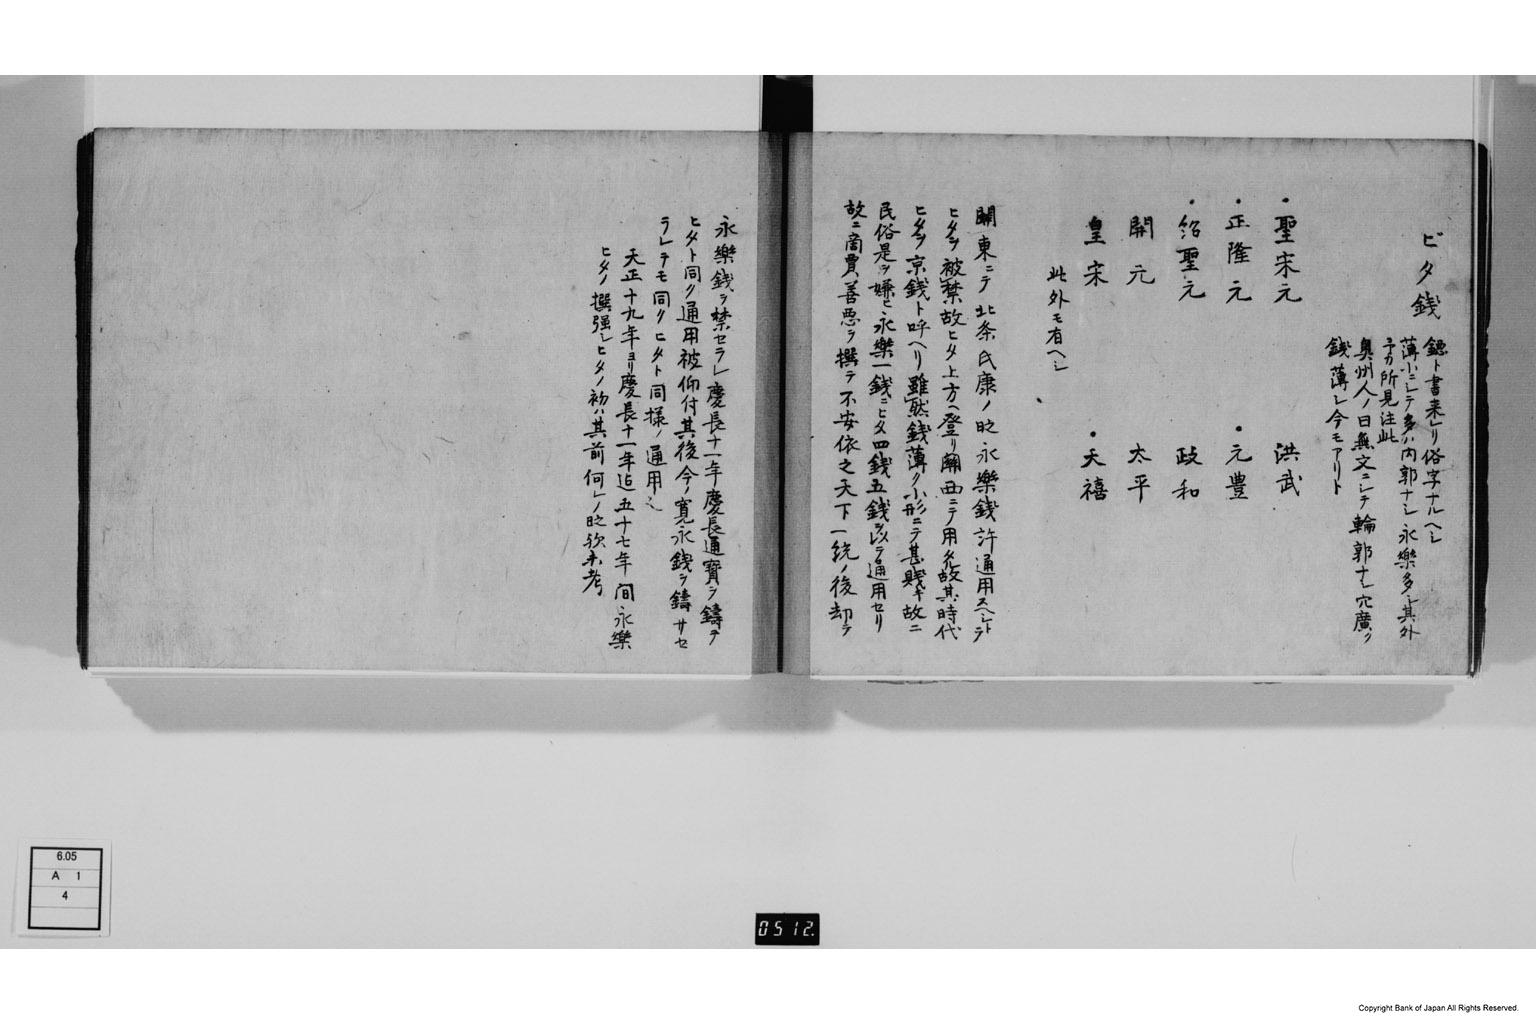 ビタ銭
鐚ト書来レリ俗字ナルヘシ
薄小ニシテ多ハ内郭ナシ永樂多シ其外
予カ所見注此
奥州人ノ曰無文ニシテ輪郭ナシ穴廣ク
銭薄シ今モアリト
・聖宋元 洪武
・正隆元 ・元豊
・紹聖元 政和
開元 太平
皇宋 ・天禧
此外モ有ヘシ
關東ニテ北条氏康ノ時永樂銭許通用スヘシトテ
ヒタヲ被禁故ヒタ上方ヘ登リ關西ニテ用允故其時代
ヒタヲ京銭ト呼ヘリ雖然銭薄ク小形ニテ甚賤キ故ニ
民俗是ヲ嫌ヒ永樂一銭ニヒタ四銭五銭ヲ以テ通用セリ
故ニ商買善悪ヲ撰テ不安依之天下一統ノ後却テ
永樂銭ヲ禁セラレ慶長十一年慶長通寳ヲ鑄テ
ヒタト同ク通用被仰付其後今ノ寛永銭ヲ鑄サセ
ラレテモ同クヒタト同様ノ通用也
天正十九年ヨリ慶長十一年迄五十七年間永樂
ヒタノ撰強シヒタノ初ハ其前何レノ時欤未考
6.05
A 1
4
0512.
Copyright Bank of Japan All Rights Reserved.